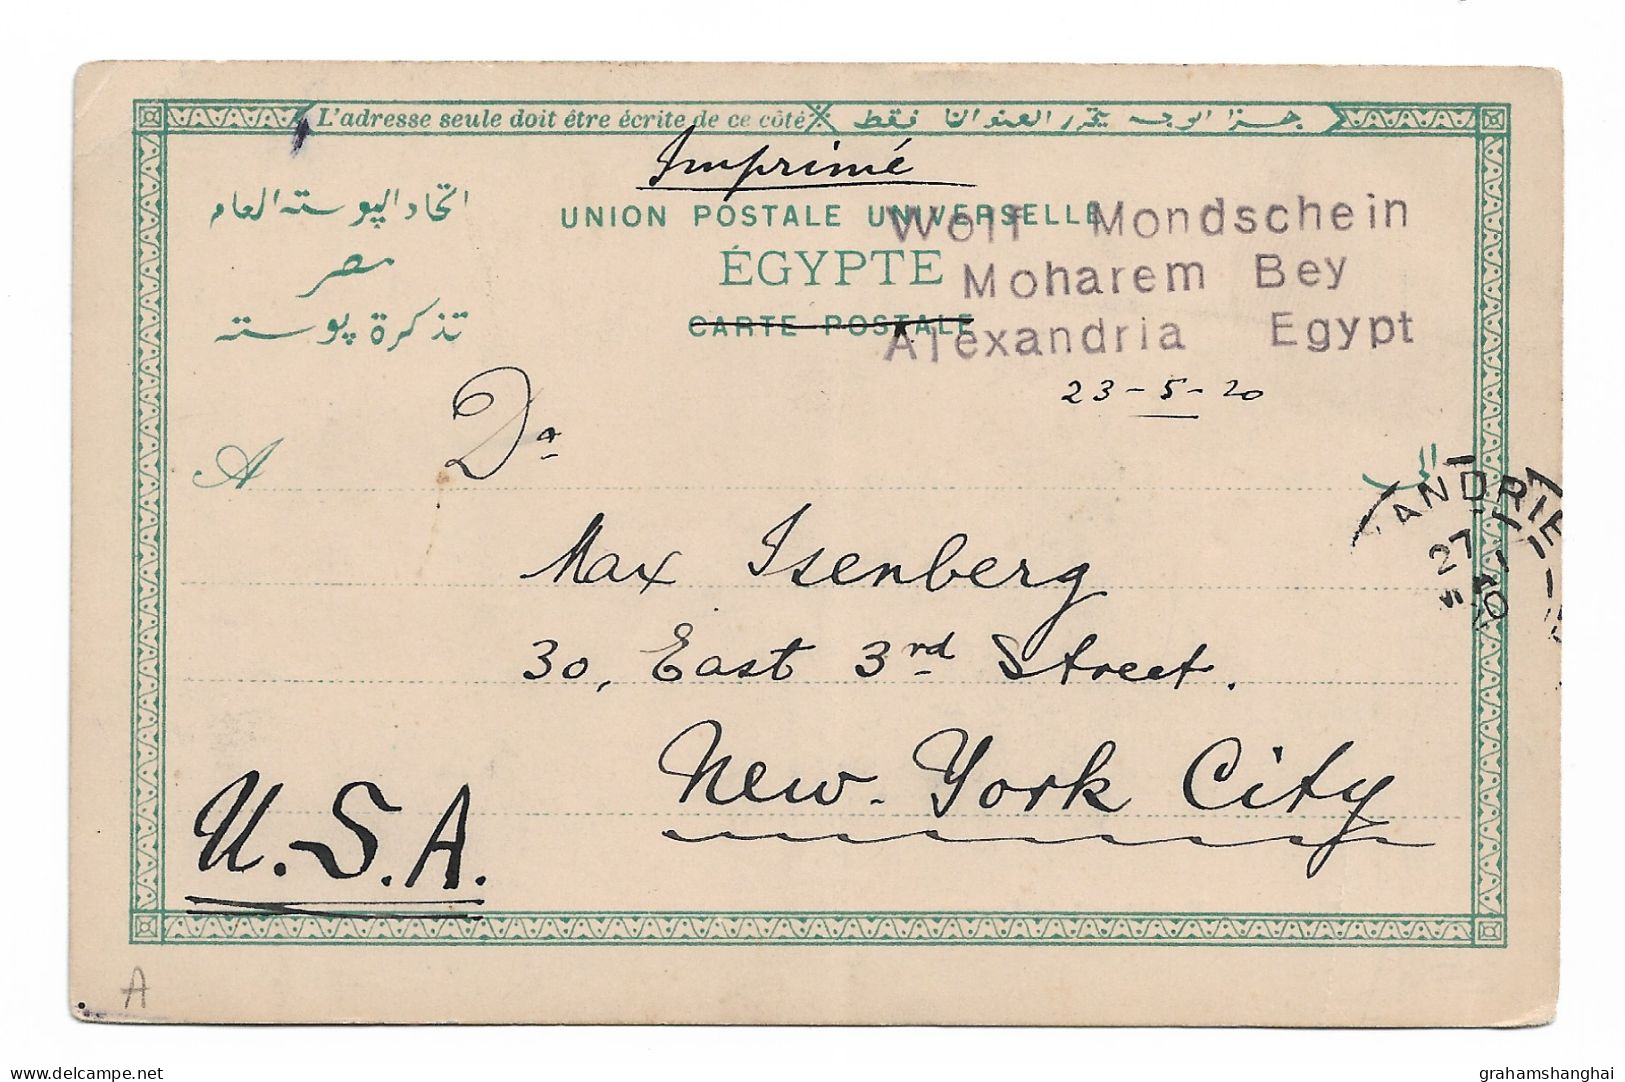 L'adresse seule doit être écrite de ce côté
جزا الوجه يتحرر العنوان فقط
Imprimé
اتحاد البوسته العام
UNION POSTALE UNIVERSELLE
Wolf Mondschein
مصر
ÉGYPTE
Moharem Bey
تذكرة بوسته
CARTE POSTALE
Alexandria Egypt
23-5-20
A
الى
ANDRIE
27
Max Isenberg
30, East 3rd Street.
New-York City
U.S.A.
A
delcampe.net
grahamshanghai